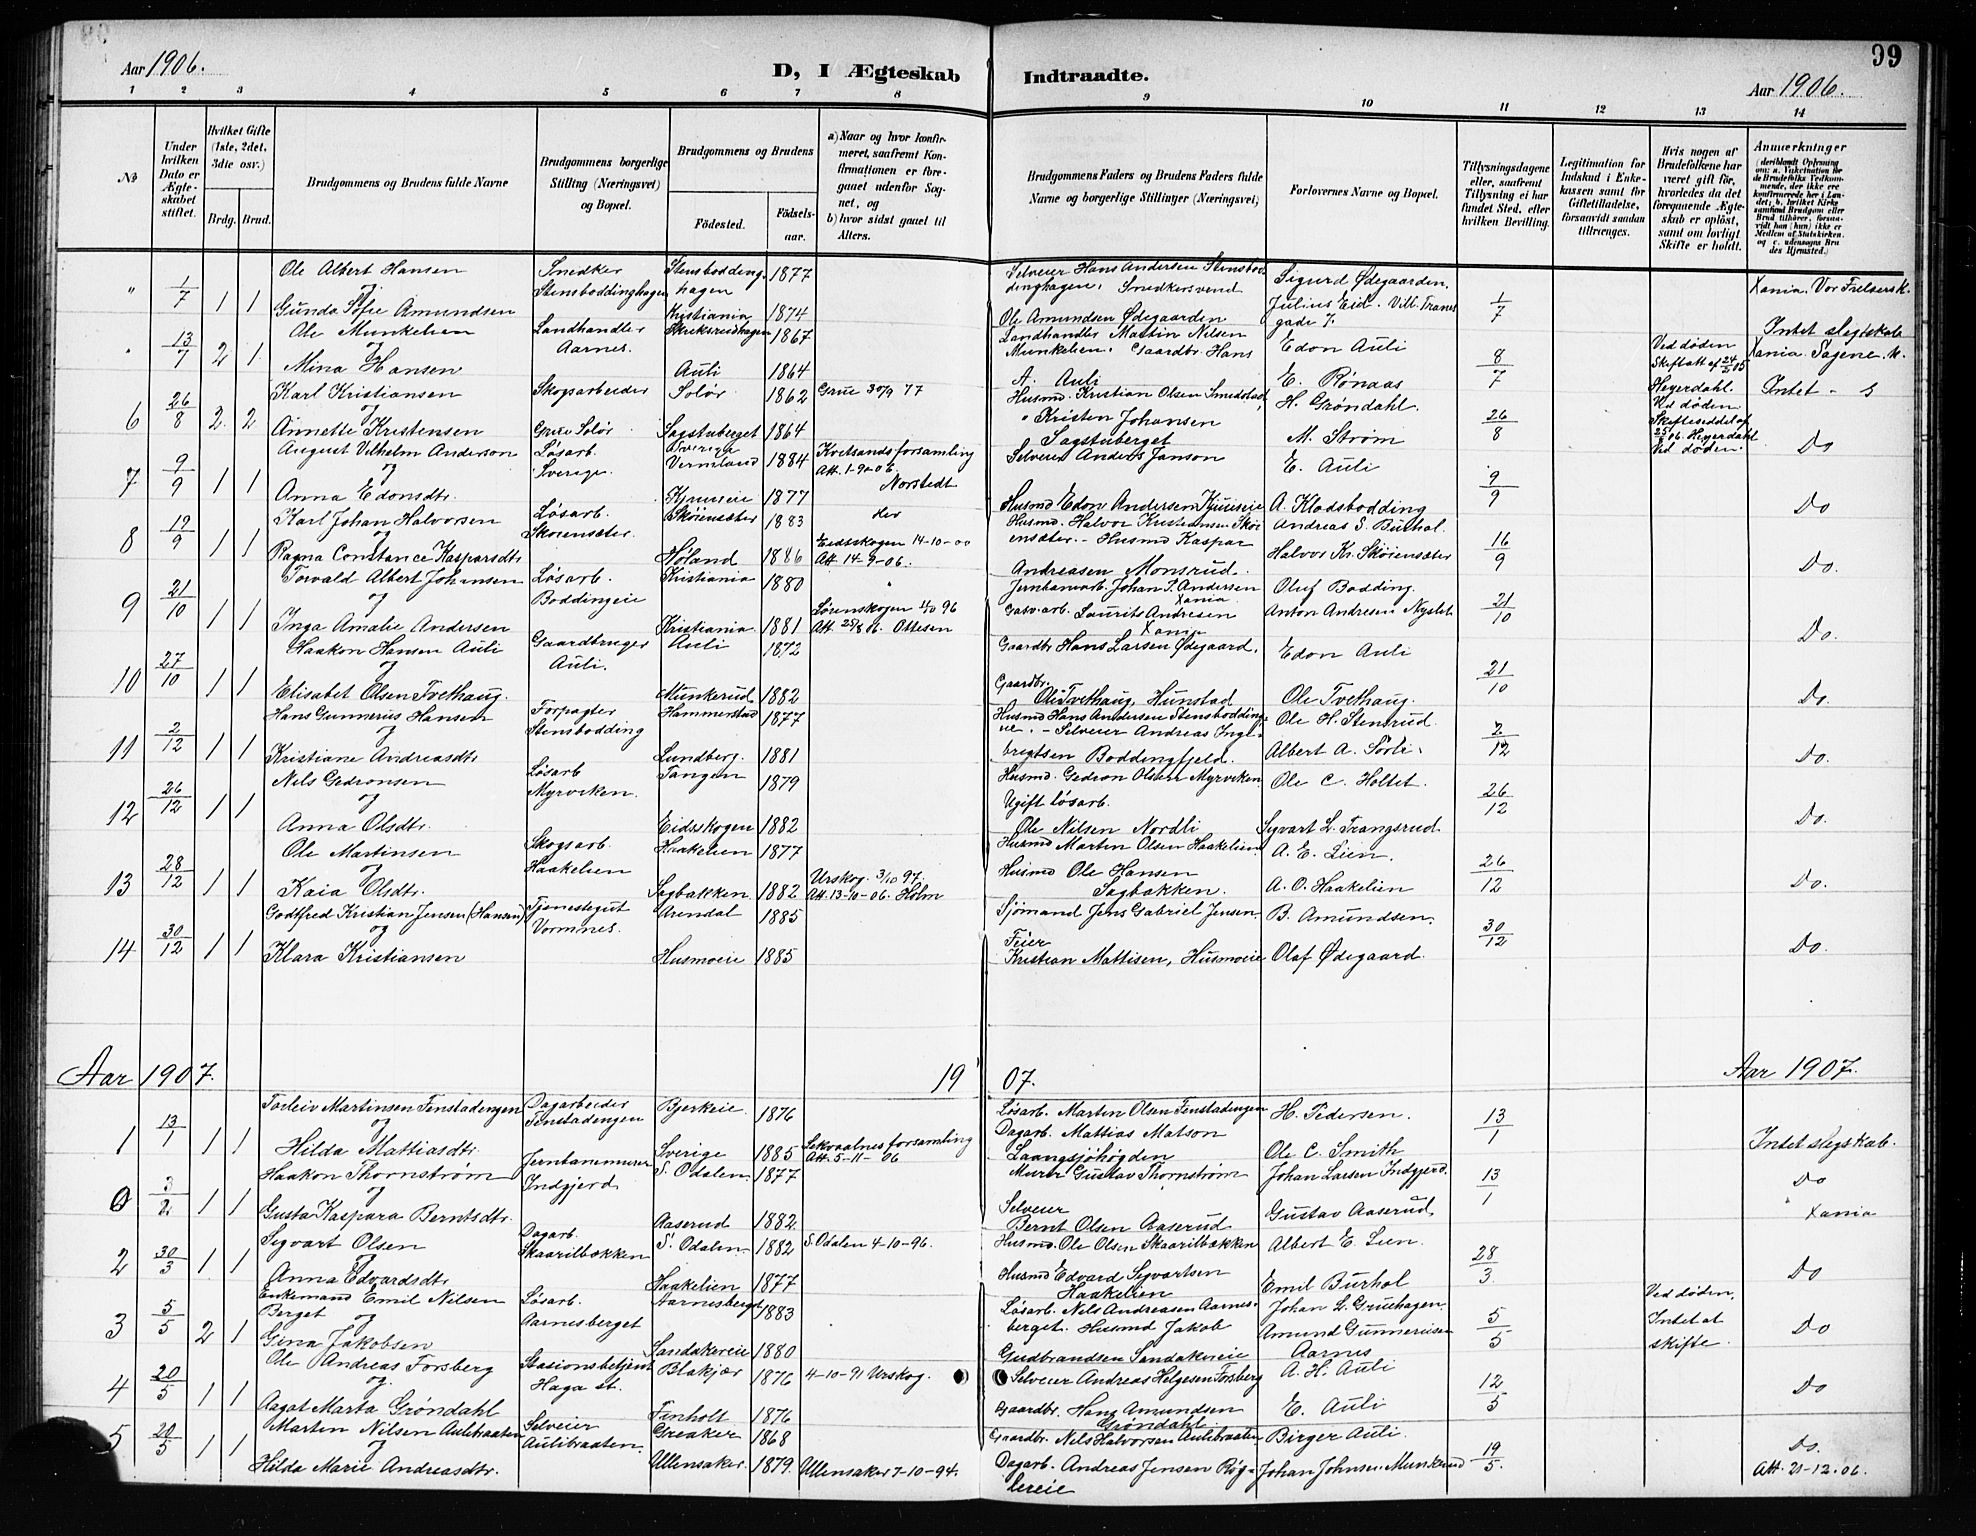 99
Aar 1906.
D, I Ægteskab Indtraadte.
Aar 1906.
1 2 3 4 5 6 7 8 9 10 11 12 13 14
No
Under hvilken Dato er Ægteskabet stiftet.
Hvilket Gifte (1ste, 2det, 3die osv.)
Brdg. Brud.
Brudgommens og Brudens fulde Navne
Brudgommens borgerlige Stilling (Næringsvei) og Bopæl.
Brudgommens og Brudens
Fødested. Fødselsaar.
a) Naar og hvor konfirmeret, saafremt Konfirmationen er foregaaet udenfor Sognet, og
b) hvor sidst gaaet til Alters.
Brudgommens Faders og Brudens Faders fulde Navne og borgerlige Stillinger (Næringsvei)
Forlovernes Navne og Bopæl.
Tillysningsdagene eller, saafremt Tillysning ei har fundet Sted, efter hvilken Bevilling.
Legitimation for Indskud i Enkekassen samt for Giftetilladelse, forsaavidt saadan tiltrænges.
Hvis nogen af Brudefolkene har været gift før, hvorledes da det foregaaende Ægteskab er opløst, samt om lovligt Skifte er holdt.
Anmærkninger
" 1/7 1 1 Ole Albert Hansen Snedker Stensboddinghagen 1877 Selveier Hans Andersen Stensboddinghagen. Snedkersvend Sigurd Ødegaarden. 1/7 Xania. Vor Frelsers K.
og Stensboddinghagen
Gunda Sofie Amundsen Kristiania 1874 Ole Amundsen Ødegaarden Julius Eid. Vilh. Tranes gade 7.
" 13/7 2 1 Ole Munkelien Landhandler Aarnes. 1867 Landhandler Martin Nilsen Munkelien. Gaardbr. Hans Edon Auli 8/7 Ved døden Intet slegtskab
og
Mina Hansen Auli 1864 A. Auli E. Rønaas Xania. Sagene. M.
6 26/8 2 2 Karl Kristiansen Skogsarbeider Solør 1862 Grue 30/9 77 Husmd. Kristian Olsen Smedstad, H. Grøndahl. 26/8 Heyerdahl. Ved døden Intet - s
og
Annette Kristensen Grue Solør Sagstuberget 1864 " Kristen Johansen Sagstuberget M. Strøm
7 9/9 1 1 August Vilhelm Anderson Løsarb. Sverige. Sverige Vermland 1884 Att. 1-9-06. Norstedt Selveier Anders Janson E. Auli 9/9 Ved døden. Do
og
Anna Edonsdtr. 1877 Husmd Edon Andersen A. Klodsbodding
8 19/9 1 1 Karl Johan Halvorsen Løsarb. Skørensæter. Skørensæter 1883 Her Husmd. Halvor Kristensen Skørensæter. - Husmd Kaspar Andreas S. Burhol. 16/9 Do
og
Ragna Constance Kaspersdtr. Høland 1886 Eidskogen 14-10-00 Att 14-9-06. Andreasen Monsrud. Halvor Kr. Skørensæter
9 21/10 1 1 Torvald Albert Johansen Løsarb. Boddingeie Kristiania 1880 " Jernbanearb. Johan P. Andersen Xania Oluf Bodding. 21/10 Do.
og
Inga Amalie Andersen Kristiania 1881 Lørenskogen 4/10 96 Att. 25/8 06. Ottesen Gasv. arb. Laurits Andresen Xania Anton Andresen Nystet
10 27/10 1 1 Haakon Hansen Auli Gaardbruger Auli. Auli 1872 Gaardbr. Hans Larsen Ødegaard. Edon Auli 21/10 Do.
og
Elisabet Olsen Tvethaug. Munkerud 1882 Gaardbr. Ole Tvethaug, Hunstad Ole Tvethaug.
11 2/12 1 1 Hans Gunnerius Hansen Forpagter Stensbodding Hammerstad 1877 Husmd Hans Andersen Stensboddingeie. - Selveier Andreas Inge- Ole H. Stenrud. 2/12 Do.
og
Kristiane Andreasdtr. Lundberg. 1881 brigtsen Boddingfjeld. Albert A. Sørli.
12 26/12 1 1 Nils Gedeonsen Løsarb Myrviken. Tangen 1879 Husmd. Gedeon Olsen Myrviken Ole C. Holtet. 26/12 Do.
og
Anna Olsdtr. Eidsskogen 1882 Ugift løsarb. Ole Nilsen Nordli Sigvart L. Trangsrud
13 28/12 1 1 Ole Martinsen Skogsarb. Haakelien Haakelien 1877 Husmd Martin Olsen Haakelien A. E. Lien. 26/12 Do.
og
Kaia Olsdtr. Sagbakken 1882 Urskog. 3/10 97. Att. 13-10-06. Holm Husmd Ole Hansen Sagbakken. A. O. Haakelien
14 30/12 1 1 Godtfred Kristian Jensen (Hansen) Tjenestegut Vormnes. Arendal 1885 Sjømand Jens Gabriel Jensen B. Amundsen. 30/12 Do.
og
Klara Kristiansen Husmoeie 1885 Feier Kristian Mattisen, Husmoeie Olaf Ødegaard.
Aar 1907. 1907. Aar 1907.
1 13/1 1 1 Torleiv Martinsen Fenstadengen Dagarbeider Fenstadengen Bjerkeie. 1876 Løsarb. Martin Olsen Fenstadengen H. Pedersen. 13/1 Intet slegskab.
og
Hilda Mattiasdtr. Sverige 1885 Att. 5-11-06 Dagarb. Mattias Matson Laangsjöhögden Ole C. Smith
0 3/2 1 1 Haakon Thornstrøm Indgjerd S. Odalen 1877 Murer Gustav Thornstrøm Johan Larsen Indgjerd. 13/1 Do
og
Gusta Kaspara Berntsdtr. Aaserud 1882. Selveier Bernt Olsen Aaserud Gustav Aaserud " Xania
2 30/3 1 1 Sigvart Olsen Dagarb. Skaarilbækken S. Odalen 1882 S. Odalen 4-10-96. Husmd. Ole Olsen Skaarilbækken Albert E. Lien. 28/3 Do
Anna Edvardsdtr. Haakelien 1877 Husmd Edvard Sigvartsen Haakelien Emil Burhol
3 5/5 2 1 Enkemand Emil Nilsen Berget Løsarb. Aarnesberget Aarnesberget 1883 Løsarb. Nils Andreasen Aarnesberget. Husmd Jakob Johan L. Gruehagen. 5/5 Ved døden. Intet at skifte. Do
og
Gina Jakobsen Sandakereie 1880 Gudbrandsen Sandakereie Amund Gunneriusen Aarnes
4 20/5 1 1 Ole Andreas Forsberg Stasionsbetjent Haga st. Blakjær 1876 4-10-91 Urskog. Selveier Andreas Helgesen Forsberg A. H. Auli 12/5 Do
og
Aagot Marta Grøndahl Finholt 1876 Gaardbr. Hans Amundsen Grøndahl. E. Auli
5 20/5 1 1 Marten Nilsen Aulibraaten Selveier Aulibraaten. Greaker 1868 Gaardbr. Nils Halvorsen Aulibraaten Birger Auli. 19/5. Do.
og
Hilda Marie Andreasdtr. Ullensaker. 1879. Ullensaker 7-10-94. Dagarb. Andreas Jensen Røglereie Johan Johnsen Munkerud Att. 21-12.06.